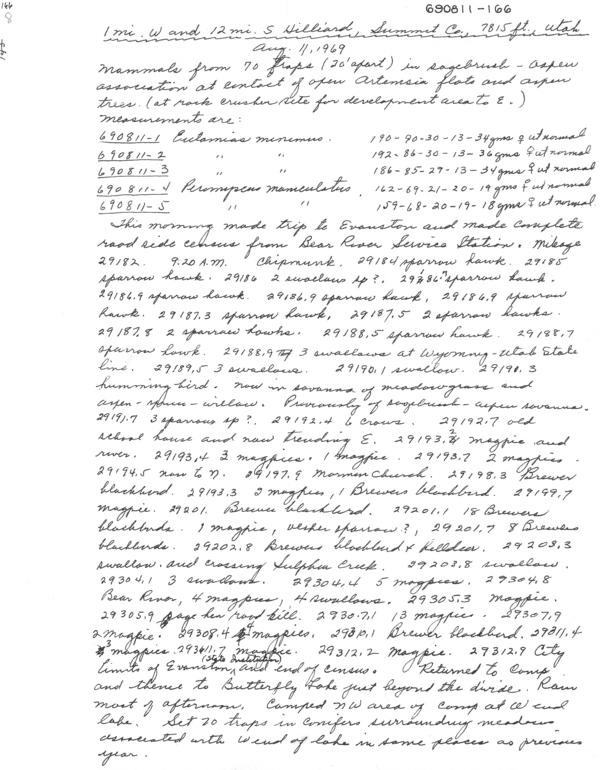 690811-166
1 mi. W and 12 mi. S Hilliard, Summit Co., 7815 ft., Utah
Aug. 11, 1969
Mammals from 70 traps (20' apart) in sagebrush - aspen
association at contact of open Artemsia flats and aspen
trees. (at rock crusher site for development area to E.)
Measurements are:
690811-1 Eutamias minimus. 190-90-30-13-34gms ♀ ut normal
690811-2 " " 192-86-30-13-36gms ♀ ut normal
690811-3 " " 186-85-29-13-34gms ♀ ut normal
690811-4 Peromyscus maniculatus. 162-69-21-20-19gms ♀ ut normal
690811-5 " " 159-68-20-19-18gms ♀ ut normal
This morning made trip to Evanston and made complete
road side census from Bear River Service Station. Mileage
29182. 9:20 A.M. Chipmunk. 29184 sparrow hawk. 29185
sparrow hawk. 29186 2 swallows sp?. 29186 sparrow hawk.
29186.9 sparrow hawk. 29186.9 sparrow hawk, 29186.9 sparrow
hawk. 29187.3 sparrow hawk, 29187.5 2 sparrow hawks.
29187.8 2 sparrow hawks. 29188.5 sparrow hawk. 29188.7
sparrow hawk. 29188.9 3 swallows at Wyoming-Utah State
line. 29189.5 3 swallows. 29190.1 swallow. 29190.3
hummingbird. Now in savanna of meadowgrass and
aspen-spruce-willow. Previously of sagebrush-aspen savanna.
29191.7 3 sparrows sp?. 29192.4 6 crows. 29192.7 old
school house and now trending E. 29193.2 magpie and
river. 29193.4 3 magpies. 1 magpie. 29193.7 2 magpies.
29194.5 now to N. 29197.9 Mormon Church. 29198.3 Brewer
blackbird. 29193.3 2 magpies, 1 Brewers blackbird. 29199.7
magpie. 29201. Brewer blackbird. 29201.1 18 Brewers
blackbirds. 1 magpie, vesper sparrow?, 29201.7 8 Brewers
blackbirds. 29202.8 Brewers blackbird & killdeer. 29203.3
swallow. and crossing Sulphur Creek. 29203.8 swallow.
29304.1 3 swallows. 29304.4 5 magpies. 29304.8
Bear River, 4 magpies, 4 swallows. 29305.3 magpie.
29305.9 sage hen road kill. 29307.1 13 magpies. 29307.9
2 magpie. 29308.4 magpies. 29310.1 Brewer blackbird. 29311.4
3 magpies. 29311.7 magpie. 29312.2 magpie. 29312.9 City
limits of Evanston, (State Institution) and end of census. Returned to Camp
and thence to Butterfly Lake just beyond the divide. Rain
most of afternoon. Camped NW area of camp at W end
lake. Set 70 traps in conifers surrounding meadow
associated with W end of lake in same places as previous
year.